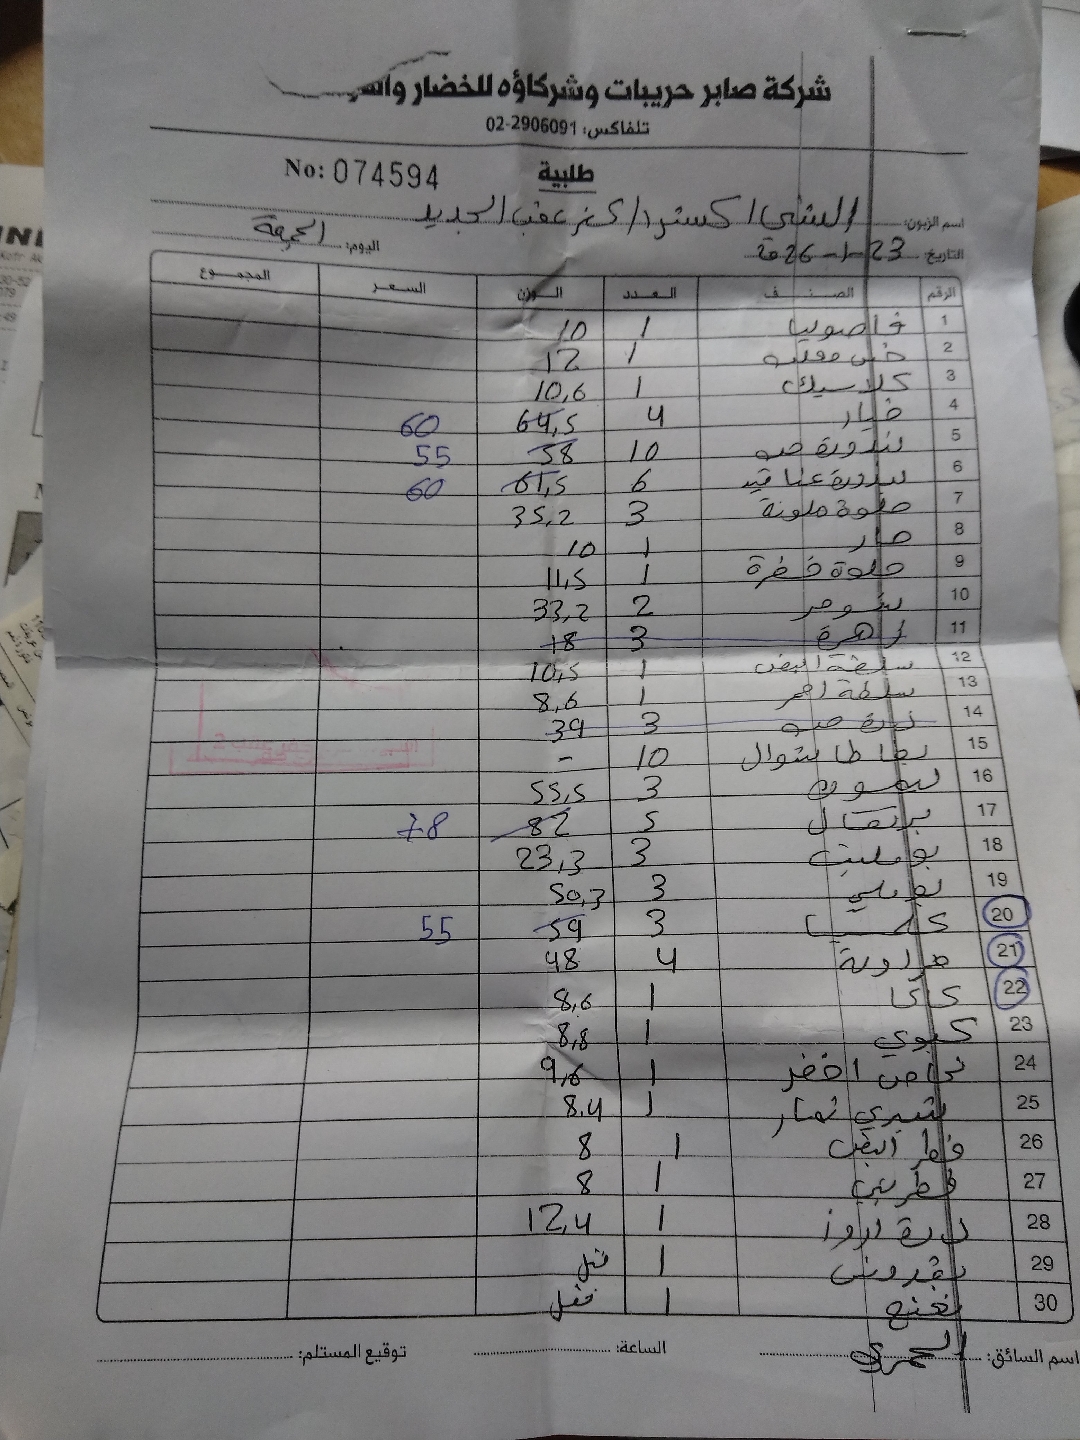 شركة صابر حريبات وشركاؤه للخضار
تلفاكس: 02-2906091
No: 074594
طلبية
اسم الزبون: الشني اكسترا / كفر عقب الجديد
التاريخ: 23-1-26 اليوم: الجمعة
الرقم الصنف العدد الوزن السعر المجموع
1 فاصوليا 1 10
2 خس 1 12
3 كلاسيك 1 10,6
4 خيار 4 64,5 60
5 بندورة حب 10 58 55
6 بندورة عناقيد 6 61,5 60
7 حلوة ملونة 3 35,2
8 حار 1 10
9 حلوة خضرة 1 11,5
10 شومر 2 33,2
11 زهرة 3 18
12 سلطة ابيض 1 10,5
13 سلطة احمر 1 8,6
14 3 39
15 بطاطا شوال 10 -
16 ليمون 3 55,5
17 برتقال 5 82 78
18 بوميليت 3 23,3
19 بوملي 3 50,3
20 3 59 55
21 4 48
22 كاكا 1 8,6
23 كيوي 1 8,8
24 اخضر 1 9,6
25 شيري تمار 1 8.4
26 فطر ابيض 1 8
27 فطر بني 1 8
28 1 12,4
29 بقدونس 1
30 نعنع 1
اسم السائق: العمري الساعة: توقيع المستلم: